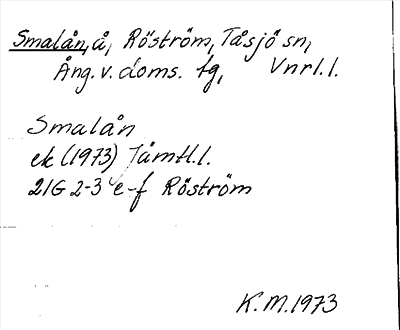 Smalån, å, Röström, Tåsjö sn,
Ång. v. doms. tg, Vnrl. l.
Smalån
ek (1973) Jämtl. l.
21G 2-3 e-f Röström
K. M. 1973